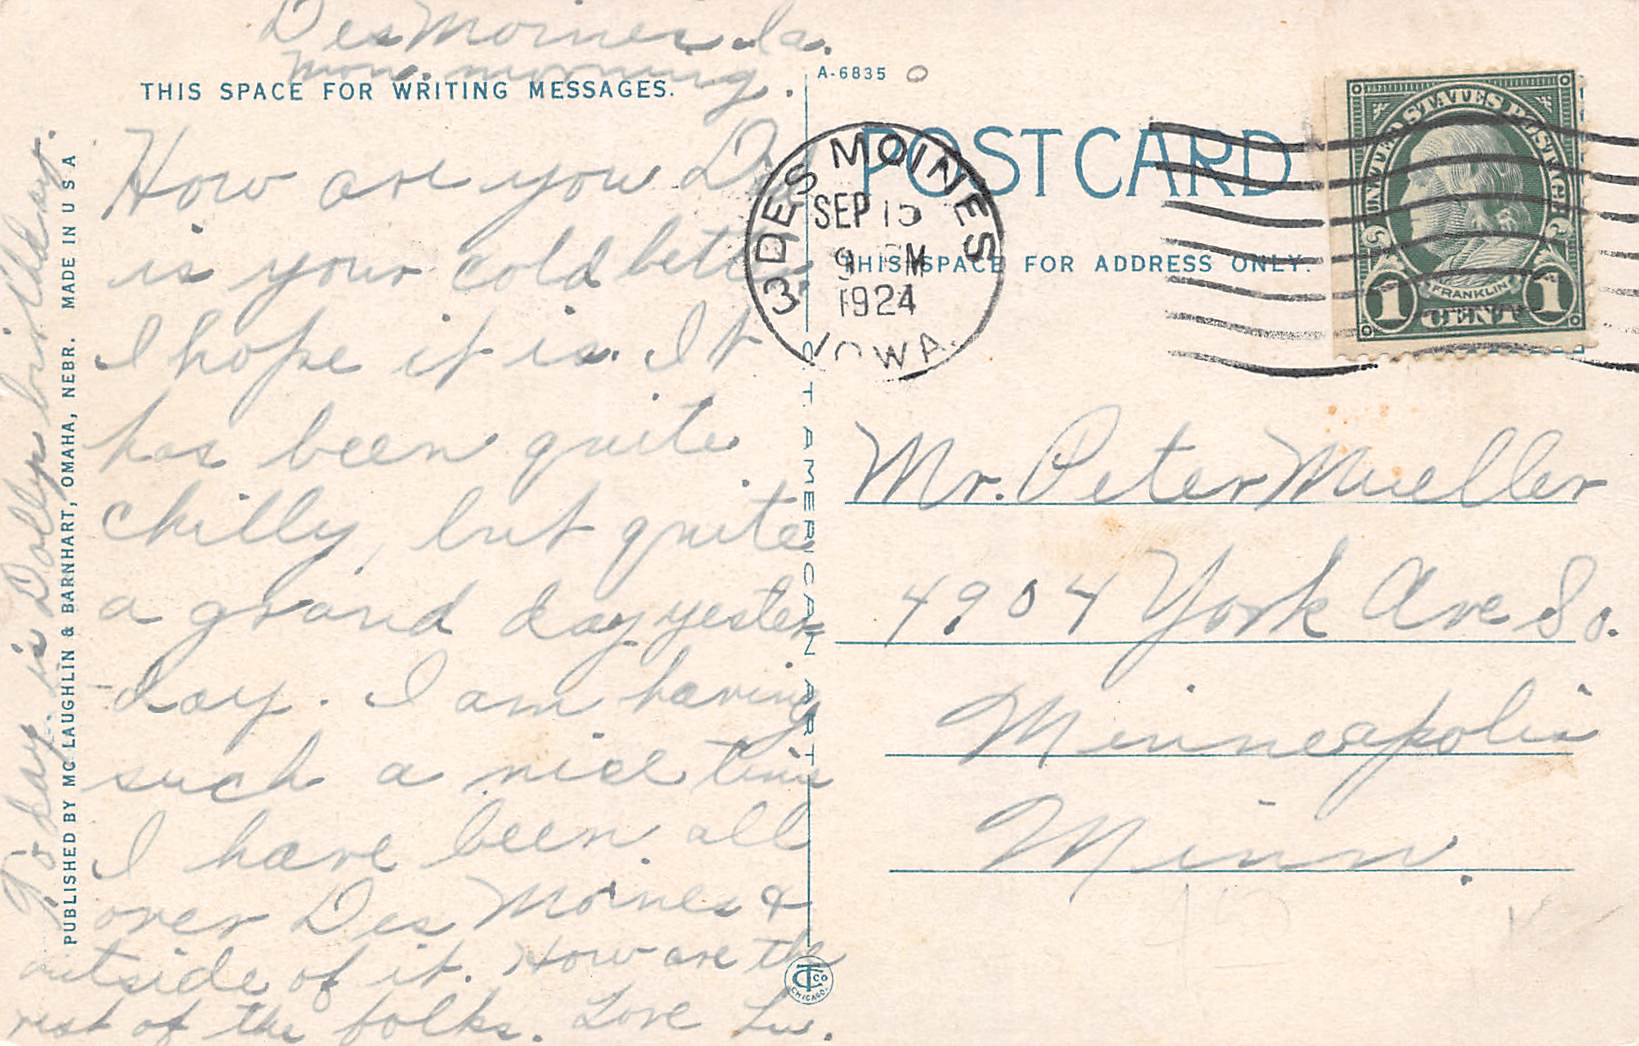 Des Moines, Ia.
Mon. morning.
THIS SPACE FOR WRITING MESSAGES.
How are you
is your cold
I hope it is. It
has been quite
chilly, but quite
a grand day yester
day. I am having
such a nice time
I have been all
over Des Moines &
outside of it. How are the
rest of the folks. Love Lu.
To day is Dolly's birthday.
PUBLISHED BY MC LAUGHLIN & BARNHART, OMAHA, NEBR. MADE IN U S A
A-6835
POST CARD
THIS SPACE FOR ADDRESS ONLY.
DES MOINES
3
SEP 15
9 M
1924
IOWA
UNITED STATES POSTAGE
FRANKLIN
1 CENT 1
C. T. AMERICAN ART
CT Co
CHICAGO
Mr. Peter Mueller
4904 York Ave So.
Minneapolis
Minn.